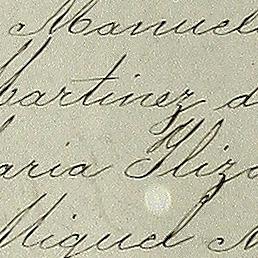 Manuel
Martinez d
aria Eliza
Miguel